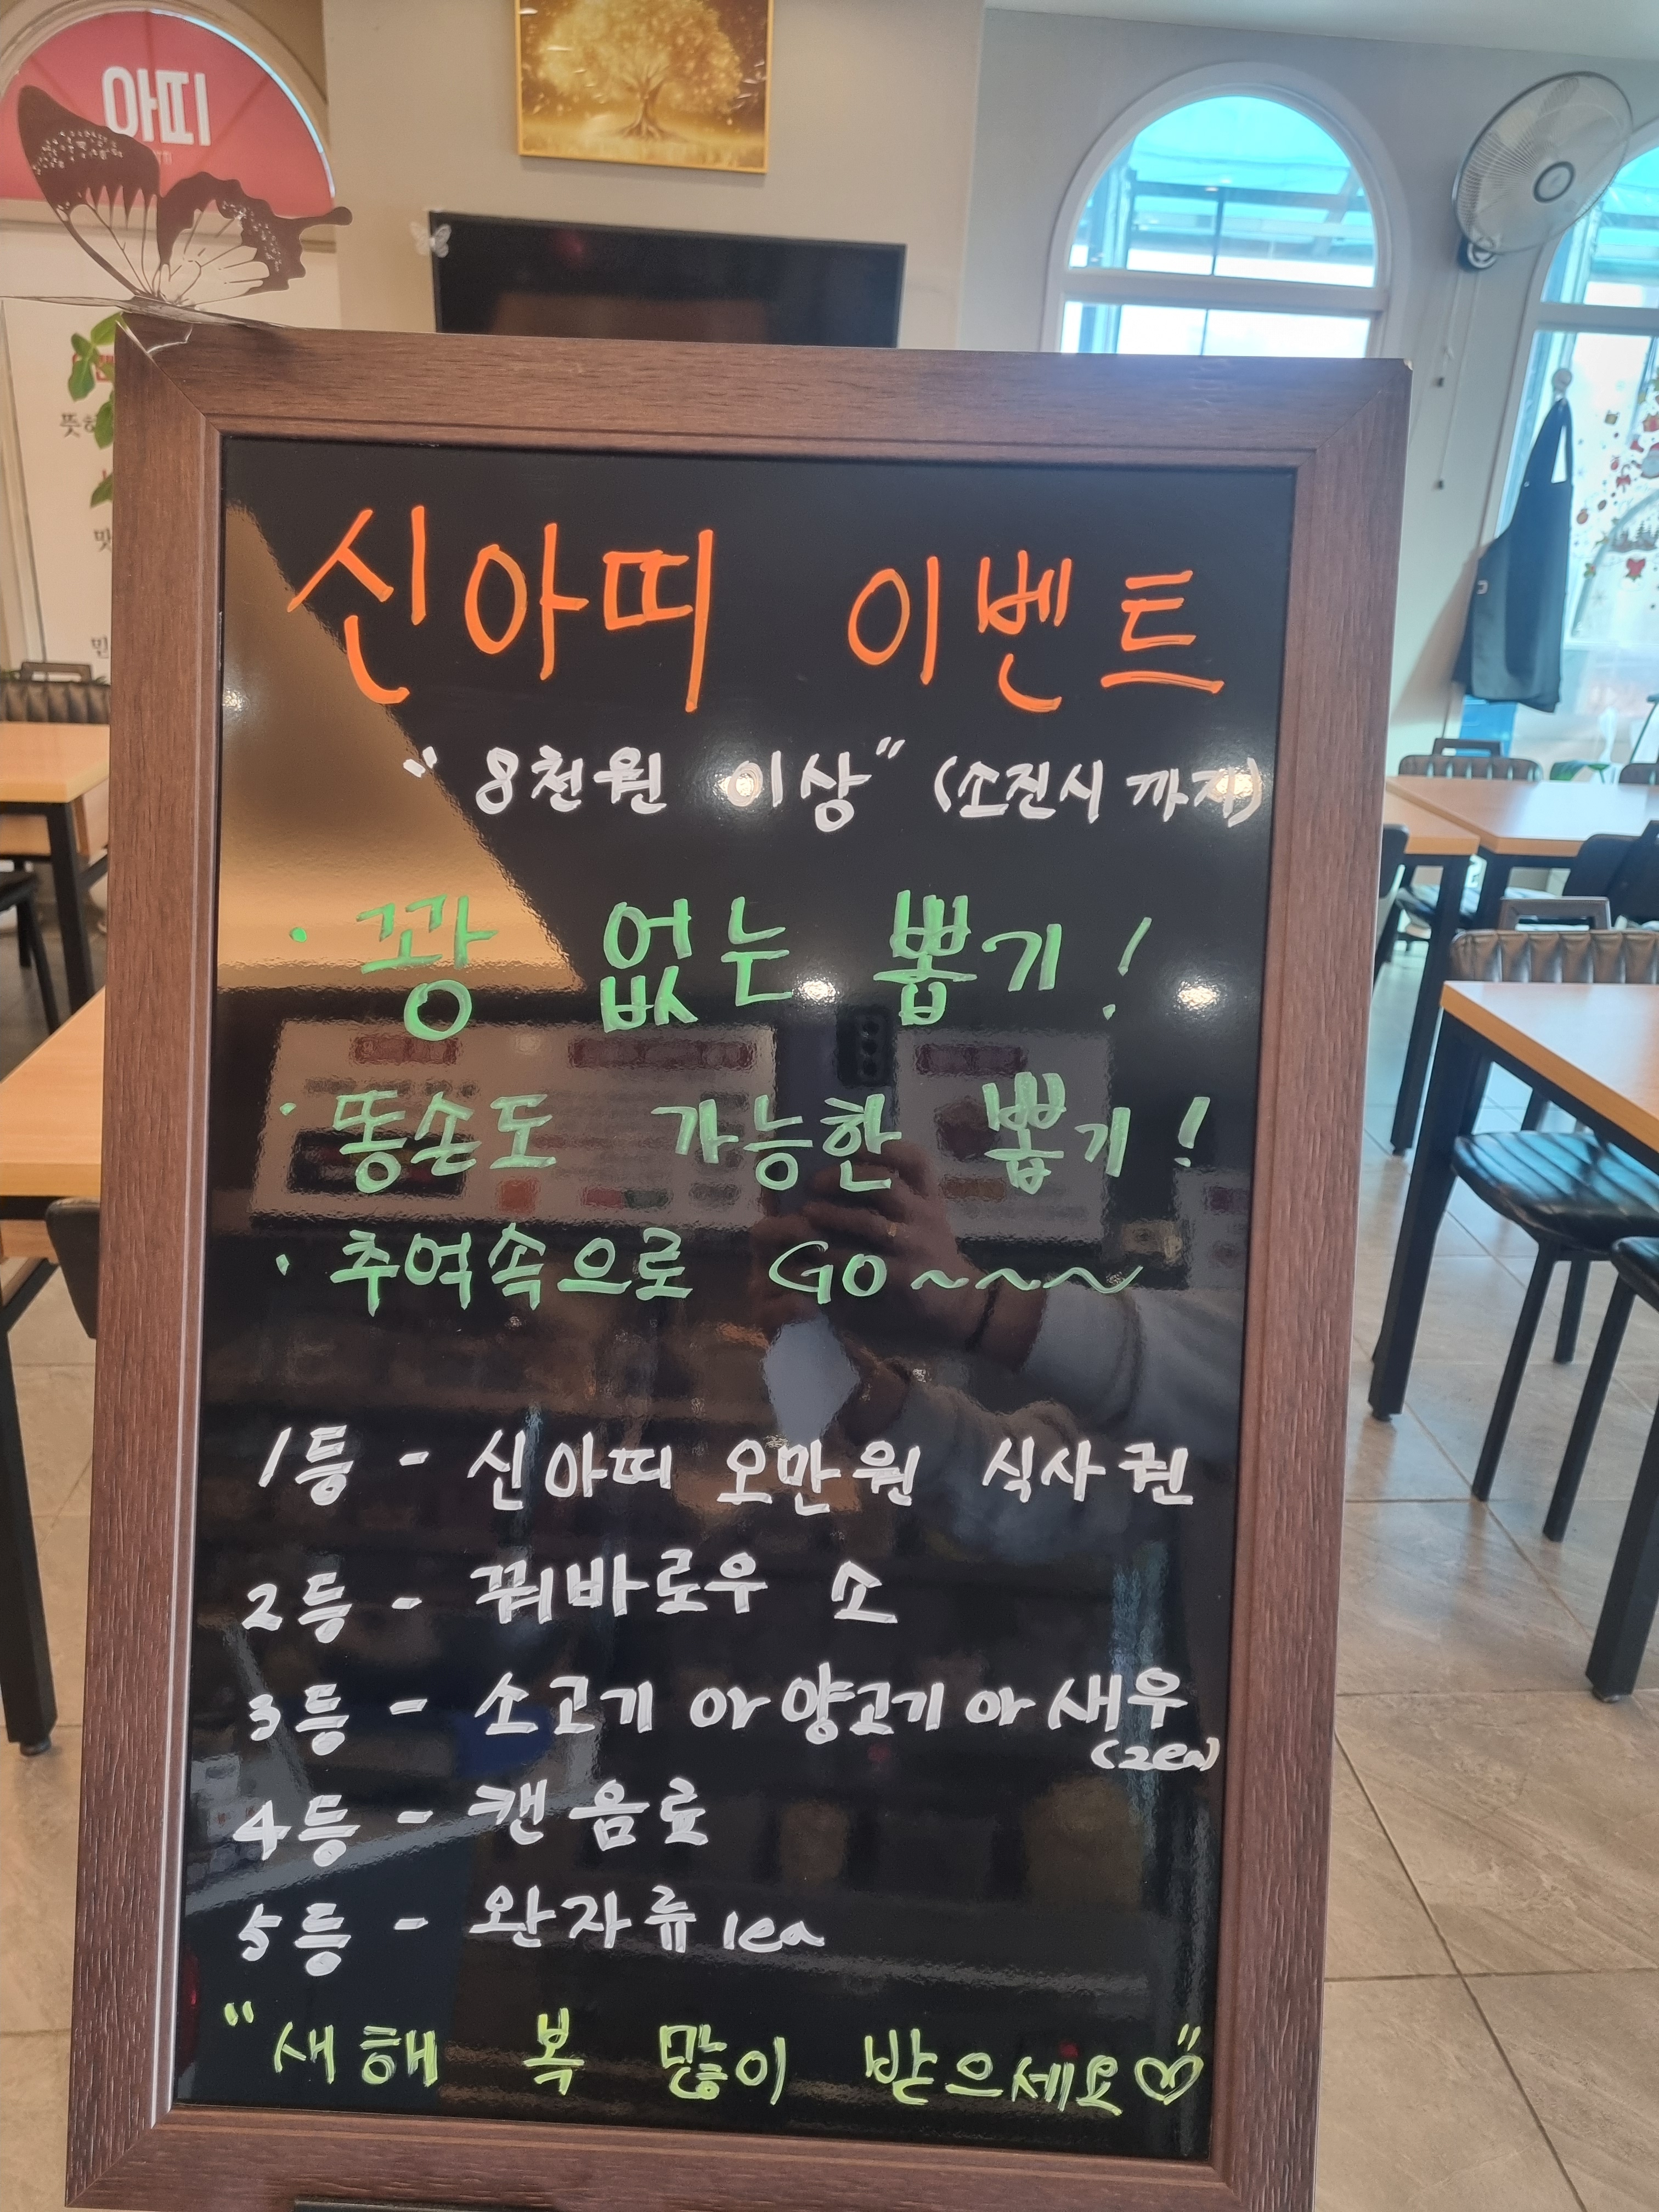 아띠
뜻하
맛
민
신아띠 이벤트
"8천원 이상" (소진시 까지)
· 꽝 없는 뽑기!
· 똥손도 가능한 뽑기!
· 추억속으로 GO~~~
1등 - 신아띠 오만원 식사권
2등 - 꿔바로우 소
3등 - 소고기 or 양고기 or 새우
(2ea)
4등 - 캔음료
5등 - 완자류 1ea
"새해 복 많이 받으세요♡"